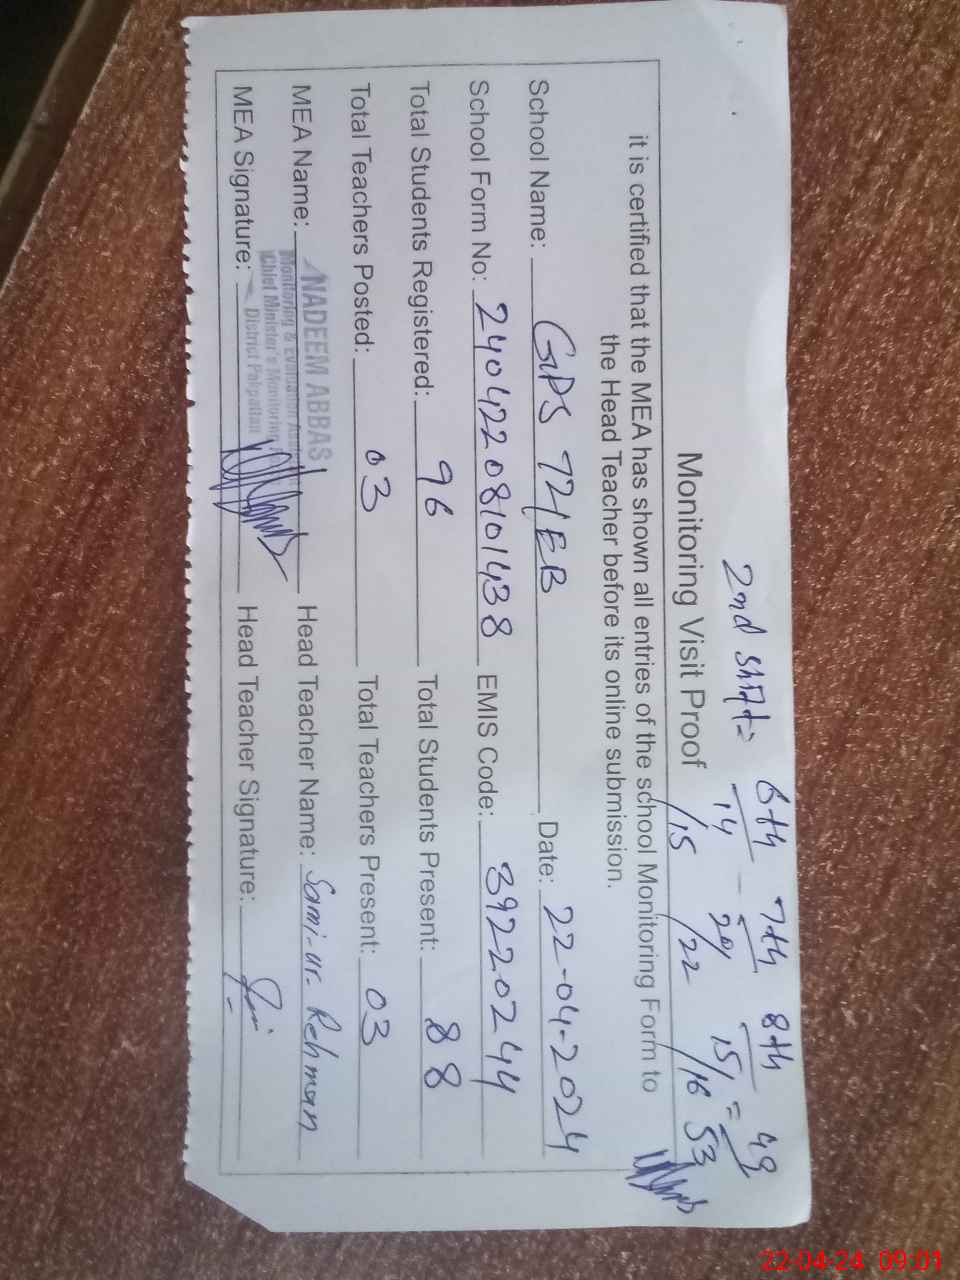 6th 7th 8th
2nd Shift = 14/15 20/22 15/16 = 49/53
Monitoring Visit Proof
it is certified that the MEA has shown all entries of the school Monitoring Form to
the Head Teacher before its online submission.
School Name: GPS 72/EB Date: 22-04-2024
School Form No: 24042208101438 EMIS Code: 39220244
Total Students Registered: 96 Total Students Present: 88
Total Teachers Posted: 03 Total Teachers Present: 03
MEA Name: NADEEM ABBAS Head Teacher Name: Sami-ur-Rehman
Monitoring & Evaluation
Chief Minister's Monitoring
District Pakpattan
MEA Signature: Head Teacher Signature:
22-04-24 09:01